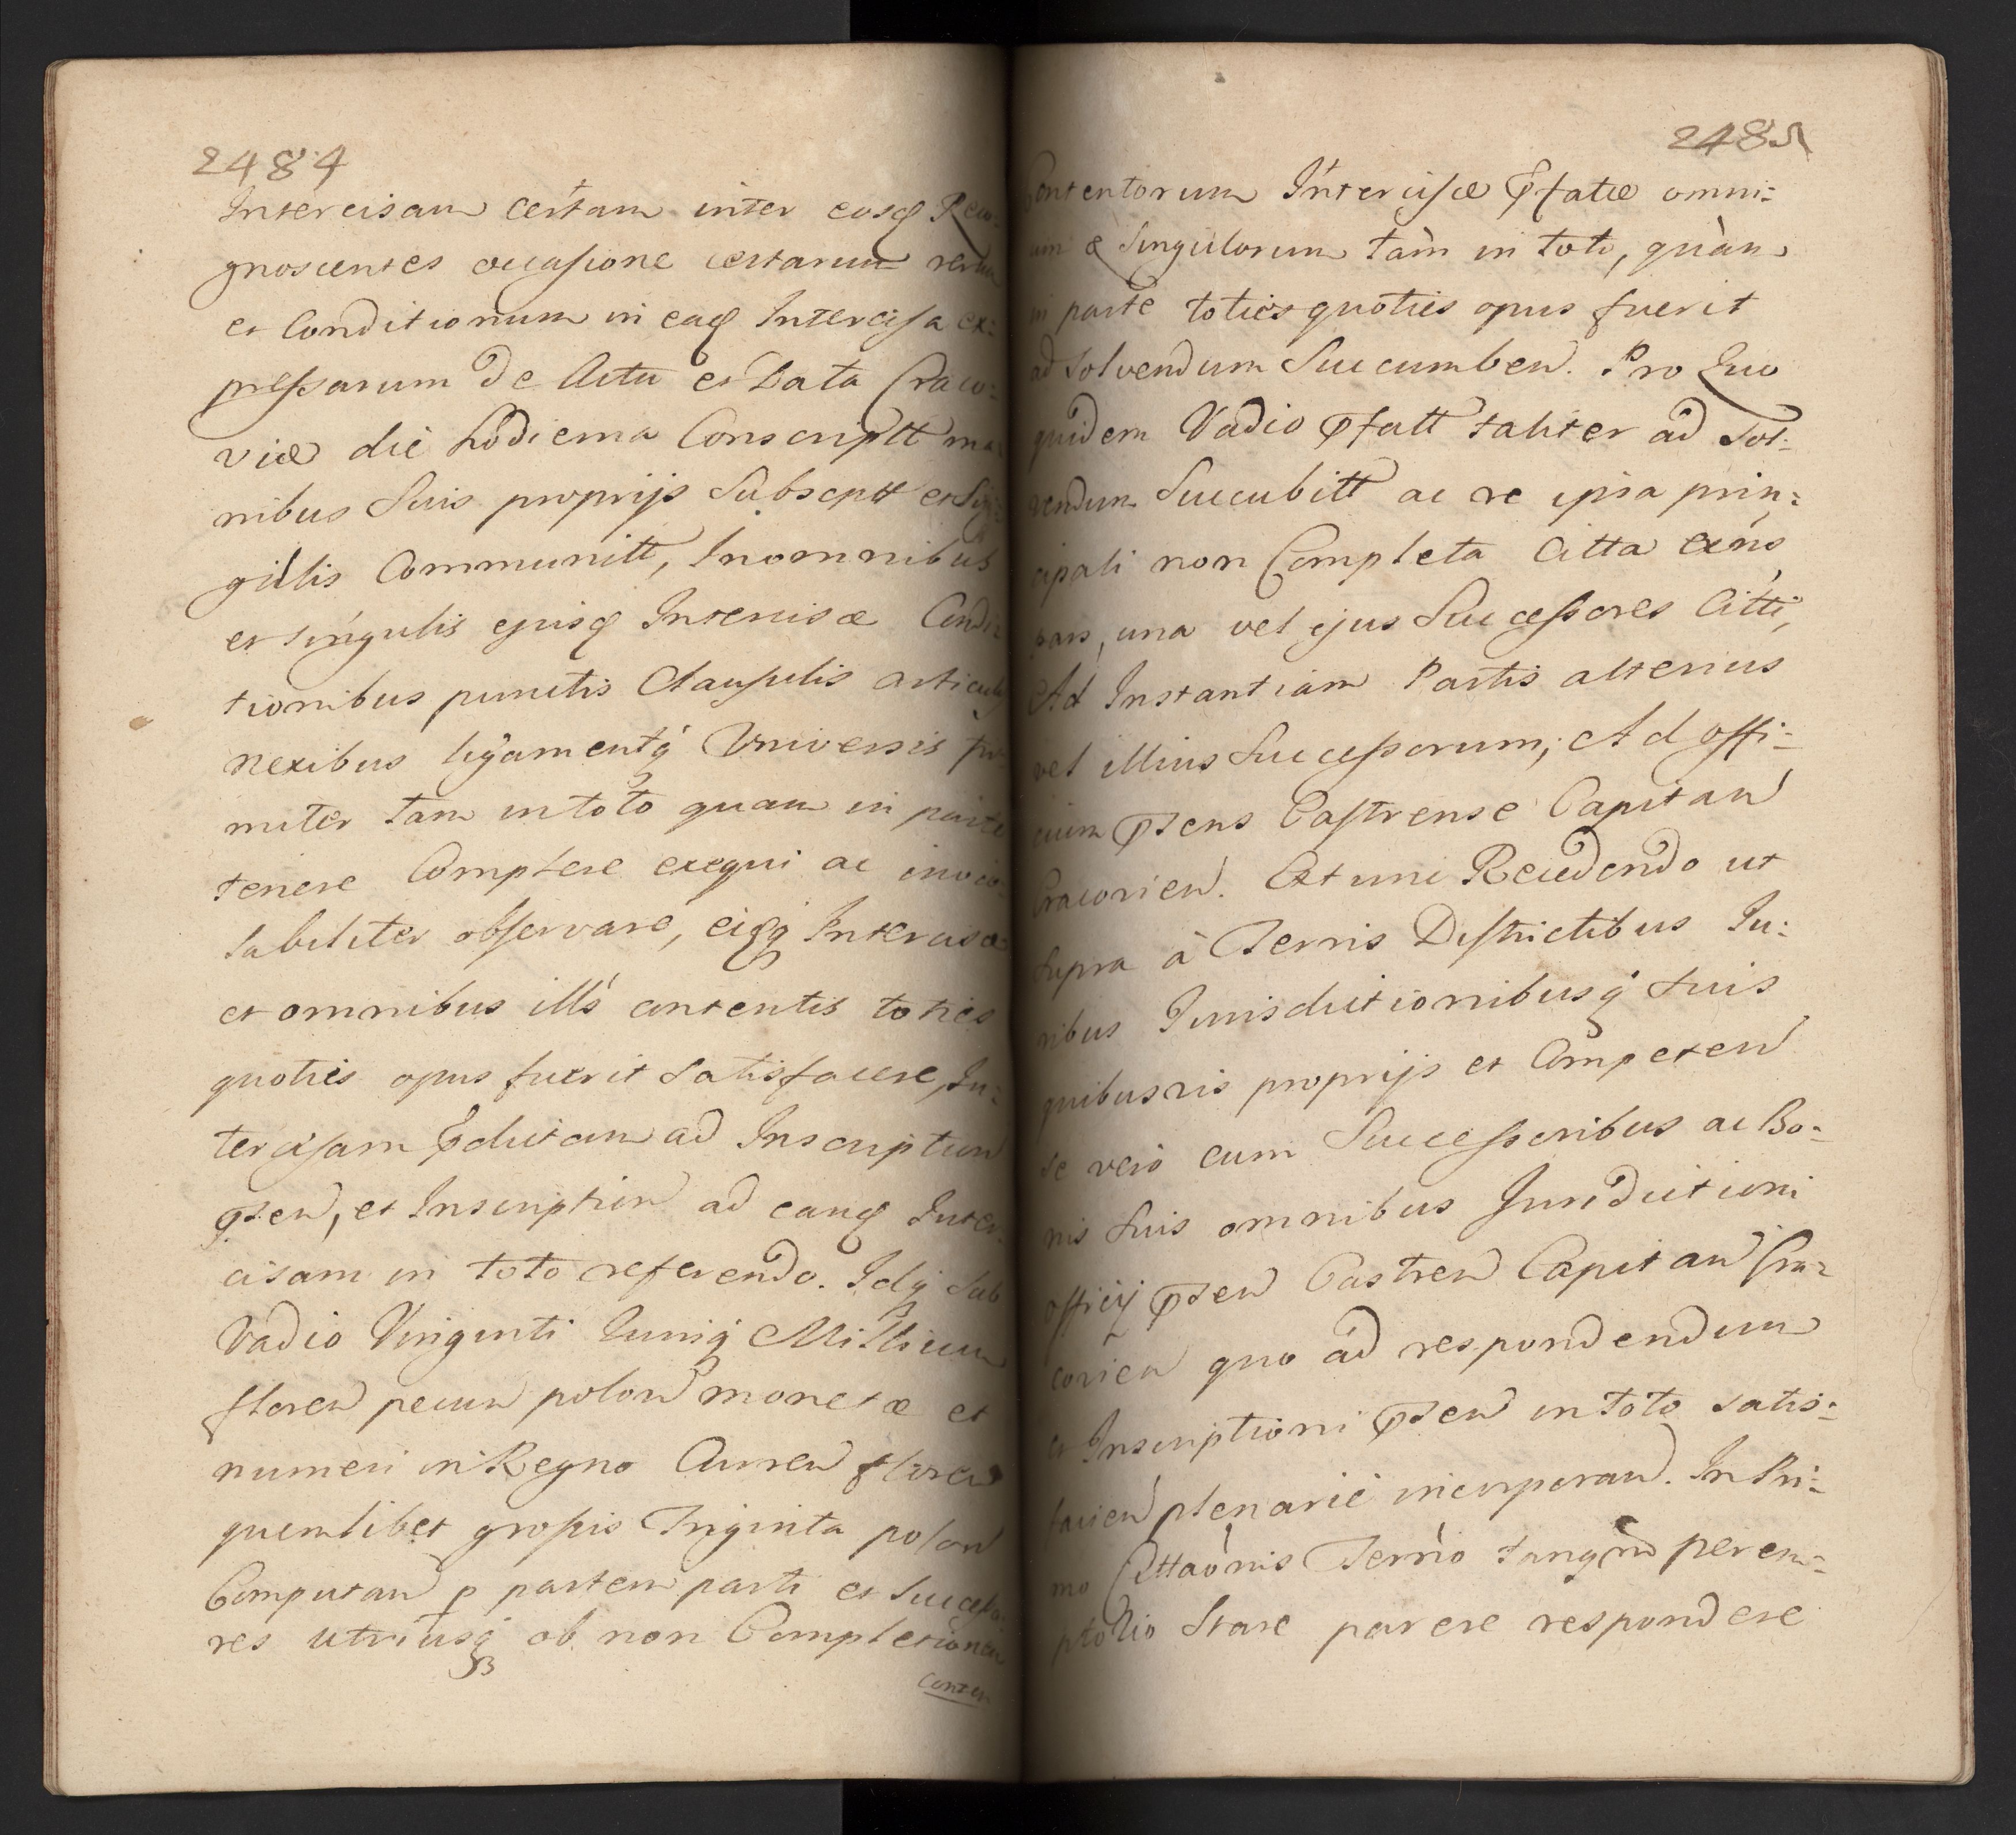 2484
Intercisam certam inter eosq Reco:
gnoscentes occasione certarum rerum
et Conditionum in eaq Intercisa ex:
pressarum de Actu et Data Craco:
viæ die hodierna Conscriptt ma:
nibus Suis proprijs Subscptt et Sig:
gillis Communitt, In omnibus
et singulis ejusq Intercisæ Condi:
tionibus punctis Clausulis articulis
nexibus ligamentq́ Universis fir:
miter tam in toto quam in parte
tenere Complere exequi ac invio:
labiliter observare, eiqq́ Intercisæ
et omnibus ill's contentis toties
quoties opus fuerit satisfacere, In:
tercisam p̄dictam ad Inscription
p̄sen, et Inscription ad eanq Inter:
cisam in toto referendo. Idq́ sub
Vadio Viginti Luniq́ Millium
floren pecun polon monetæ et
numeri in Regno Curren floren
quemlibet grossis Triginta polon
Computan p partem parti et Successo:
res utriusq́ ob non Completionem
Conten
2485
Contentorum Intercisæ p̄fatæ omni:
um & Singulorum tàm in toto, quàm
in parte toties quoties opus fuerit
ad solvendum Succumben. Pro quo
quidem Vadio p̄fatt taliter ad Sol:
vendum Succubitt ac re ipsa prin:
cipali non Completa Citta exn's
pars, una vel ejus Successores Citti,
Ad Instantiam Partis alterius
vel illius Successorum, Ad Offi:
cium p̄sens Castrense Capitan
Cracovien. Extunc Recedendo ut
supra à Terris Districtibus Ju:
ribus Jurisdictionibusq́ suis
quibusvis proprijs et Competen
se verò cum Successoribus ac Bo:
nis suis omnibus Jurisdictioni
officij p̄sen Castren Capitan Cra:
covien quo ad respondendum
et Inscriptioni p̄sen in toto satis:
facien plenariè incorporan. In Pri:
mo Cittaōnis Terṁo tanq̄m perem:
ptorio Stare parere respondere